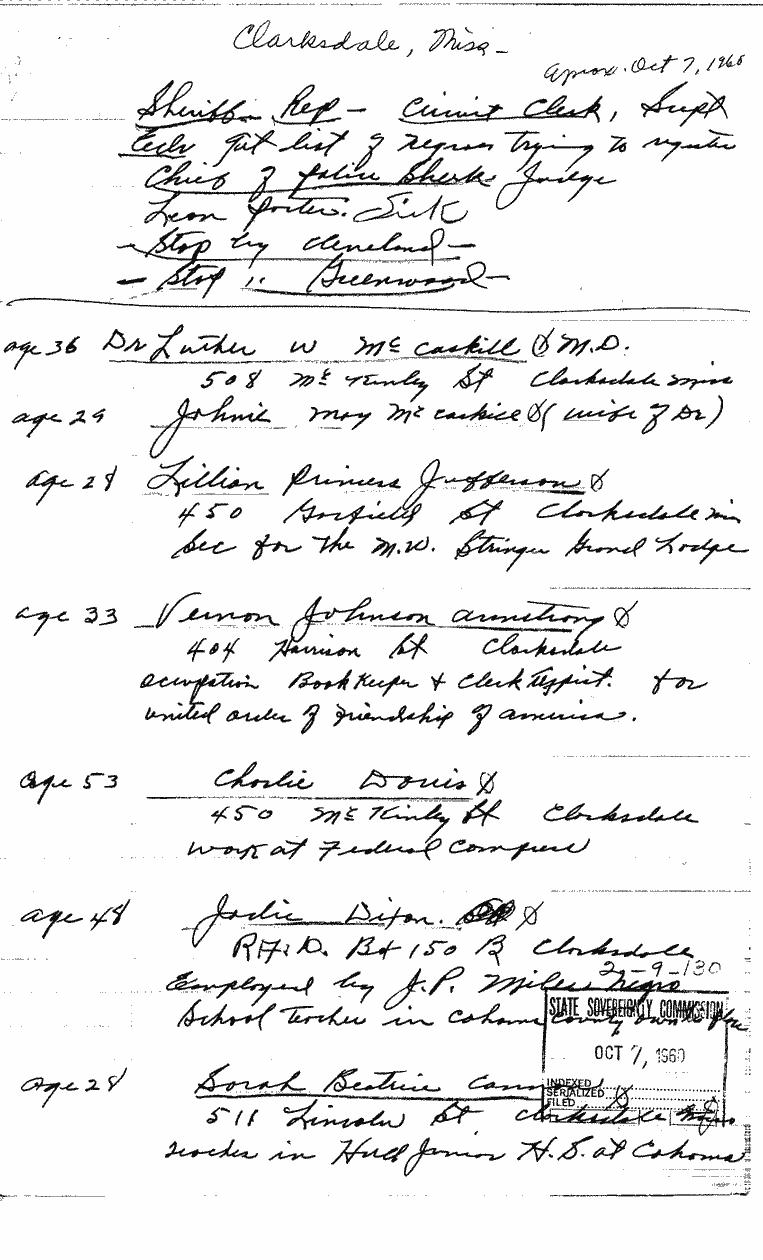 Clarksdale, Miss -
Aprox. Oct 7, 1960
Sheriff - Rep - Circuit Clerk, Supt
Edu Got list of negroes trying to register
Chief of police Judge
Leon Porter. Sick
- Stop by Cleveland -
- Stop " Greenwood -
age 36 Dr Luther W McCaskill M.D.
508 McKinley St Clarksdale Miss
age 29 Johnie May McCaskill (wife of Dr)
age 28 Lillian Princess Jefferson
450 Garfield St Clarksdale Miss
Sec for the M.W. Stringer Grand Lodge
age 33 Vernon Johnson Armstrong
404 Harrison St Clarksdale
occupation Book Keeper & Clerk Typist. for
united order of Friendship of America.
age 53 Charlie Davis
450 McKinley St Clarksdale
work at Federal Compress
age 48 Jodie Dixon.
R.F.D. Bx 150 B Clarksdale
2-9-130
Employed by J.P. Miles Negro
School Teacher in Cohoma County own
STATE SOVEREIGNTY COMMISSION
OCT 7, 1960
INDEXED
SERIALIZED
FILED
age 28 Sarah Beatrice
511 Lincoln St Clarksdale
Teacher in Hull Junior H.S. at Cohoma